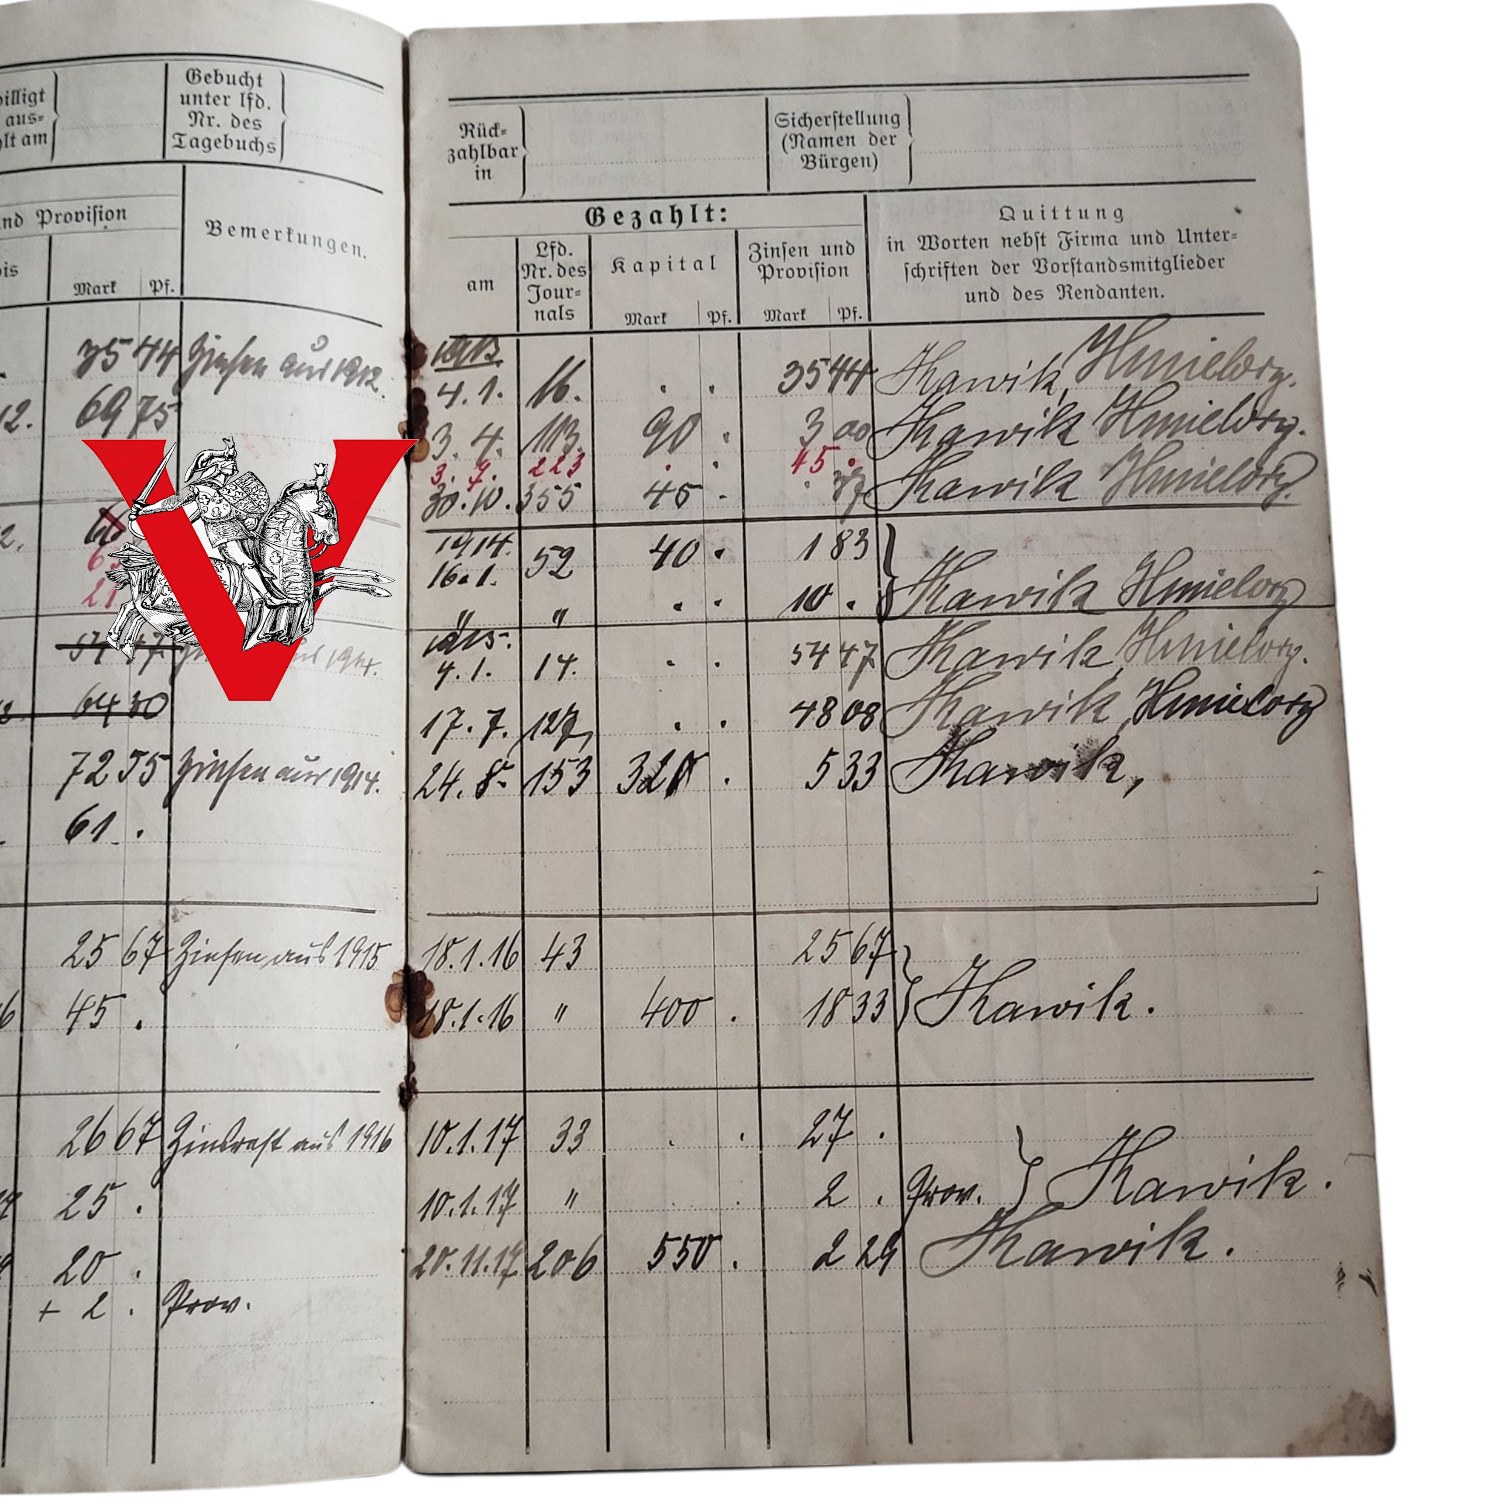 illigt
aus=
lt am
Gebucht
unter lfd.
Nr. des
Tagebuchs
nd Provision
Bemerkungen.
is
Mark Pf.
35 44 Zinsen aus 1912.
12. 69 75
2.
54 47
64 30
72 55 Zinsen aus 1914.
61 .
25 67 Zinsen aus 1915
6 45 .
26 67 Zinsrest aus 1916
25 .
20 .
+ 2 . Prov.
V
Rück=
zahlbar
in
Sicherstellung
(Namen der
Bürgen)
Gezahlt:
Quittung
in Worten nebst Firma und Unter=
schriften der Vorstandsmitglieder
und des Rendanten.
am
Lfd.
Nr. des
Jour=
nals
Kapital
Mark Pf.
Zinsen und
Provision
Mark Pf.
1913
4.1. 16. . . 35 44 Kawik, Hmielorz.
3. 4. 113. 90 . 3 00 Kawik Hmielorz.
3. 7. 223 . . 45 .
30.10. 355 45 . . Kawik Hmielorz.
1914.
16.1. 52 40 . 1 83
" " . . 10 . Kawik Hmielorz
1915.
4.1. 14. . . 54 47 Kawik Hmielorz.
17.7. 127, . . 48 08 Kawik, Hmielorz
24.8. 153 320 . 5 33 Kawik,
18.1.16 43 25 67
18.1.16 " 400 . 18 33 Kawik.
10.1.17 33 . . 27 .
10.1.17 " . . 2 . Prov. Kawik.
20.11.17 206 550 . 2 29 Kawik.